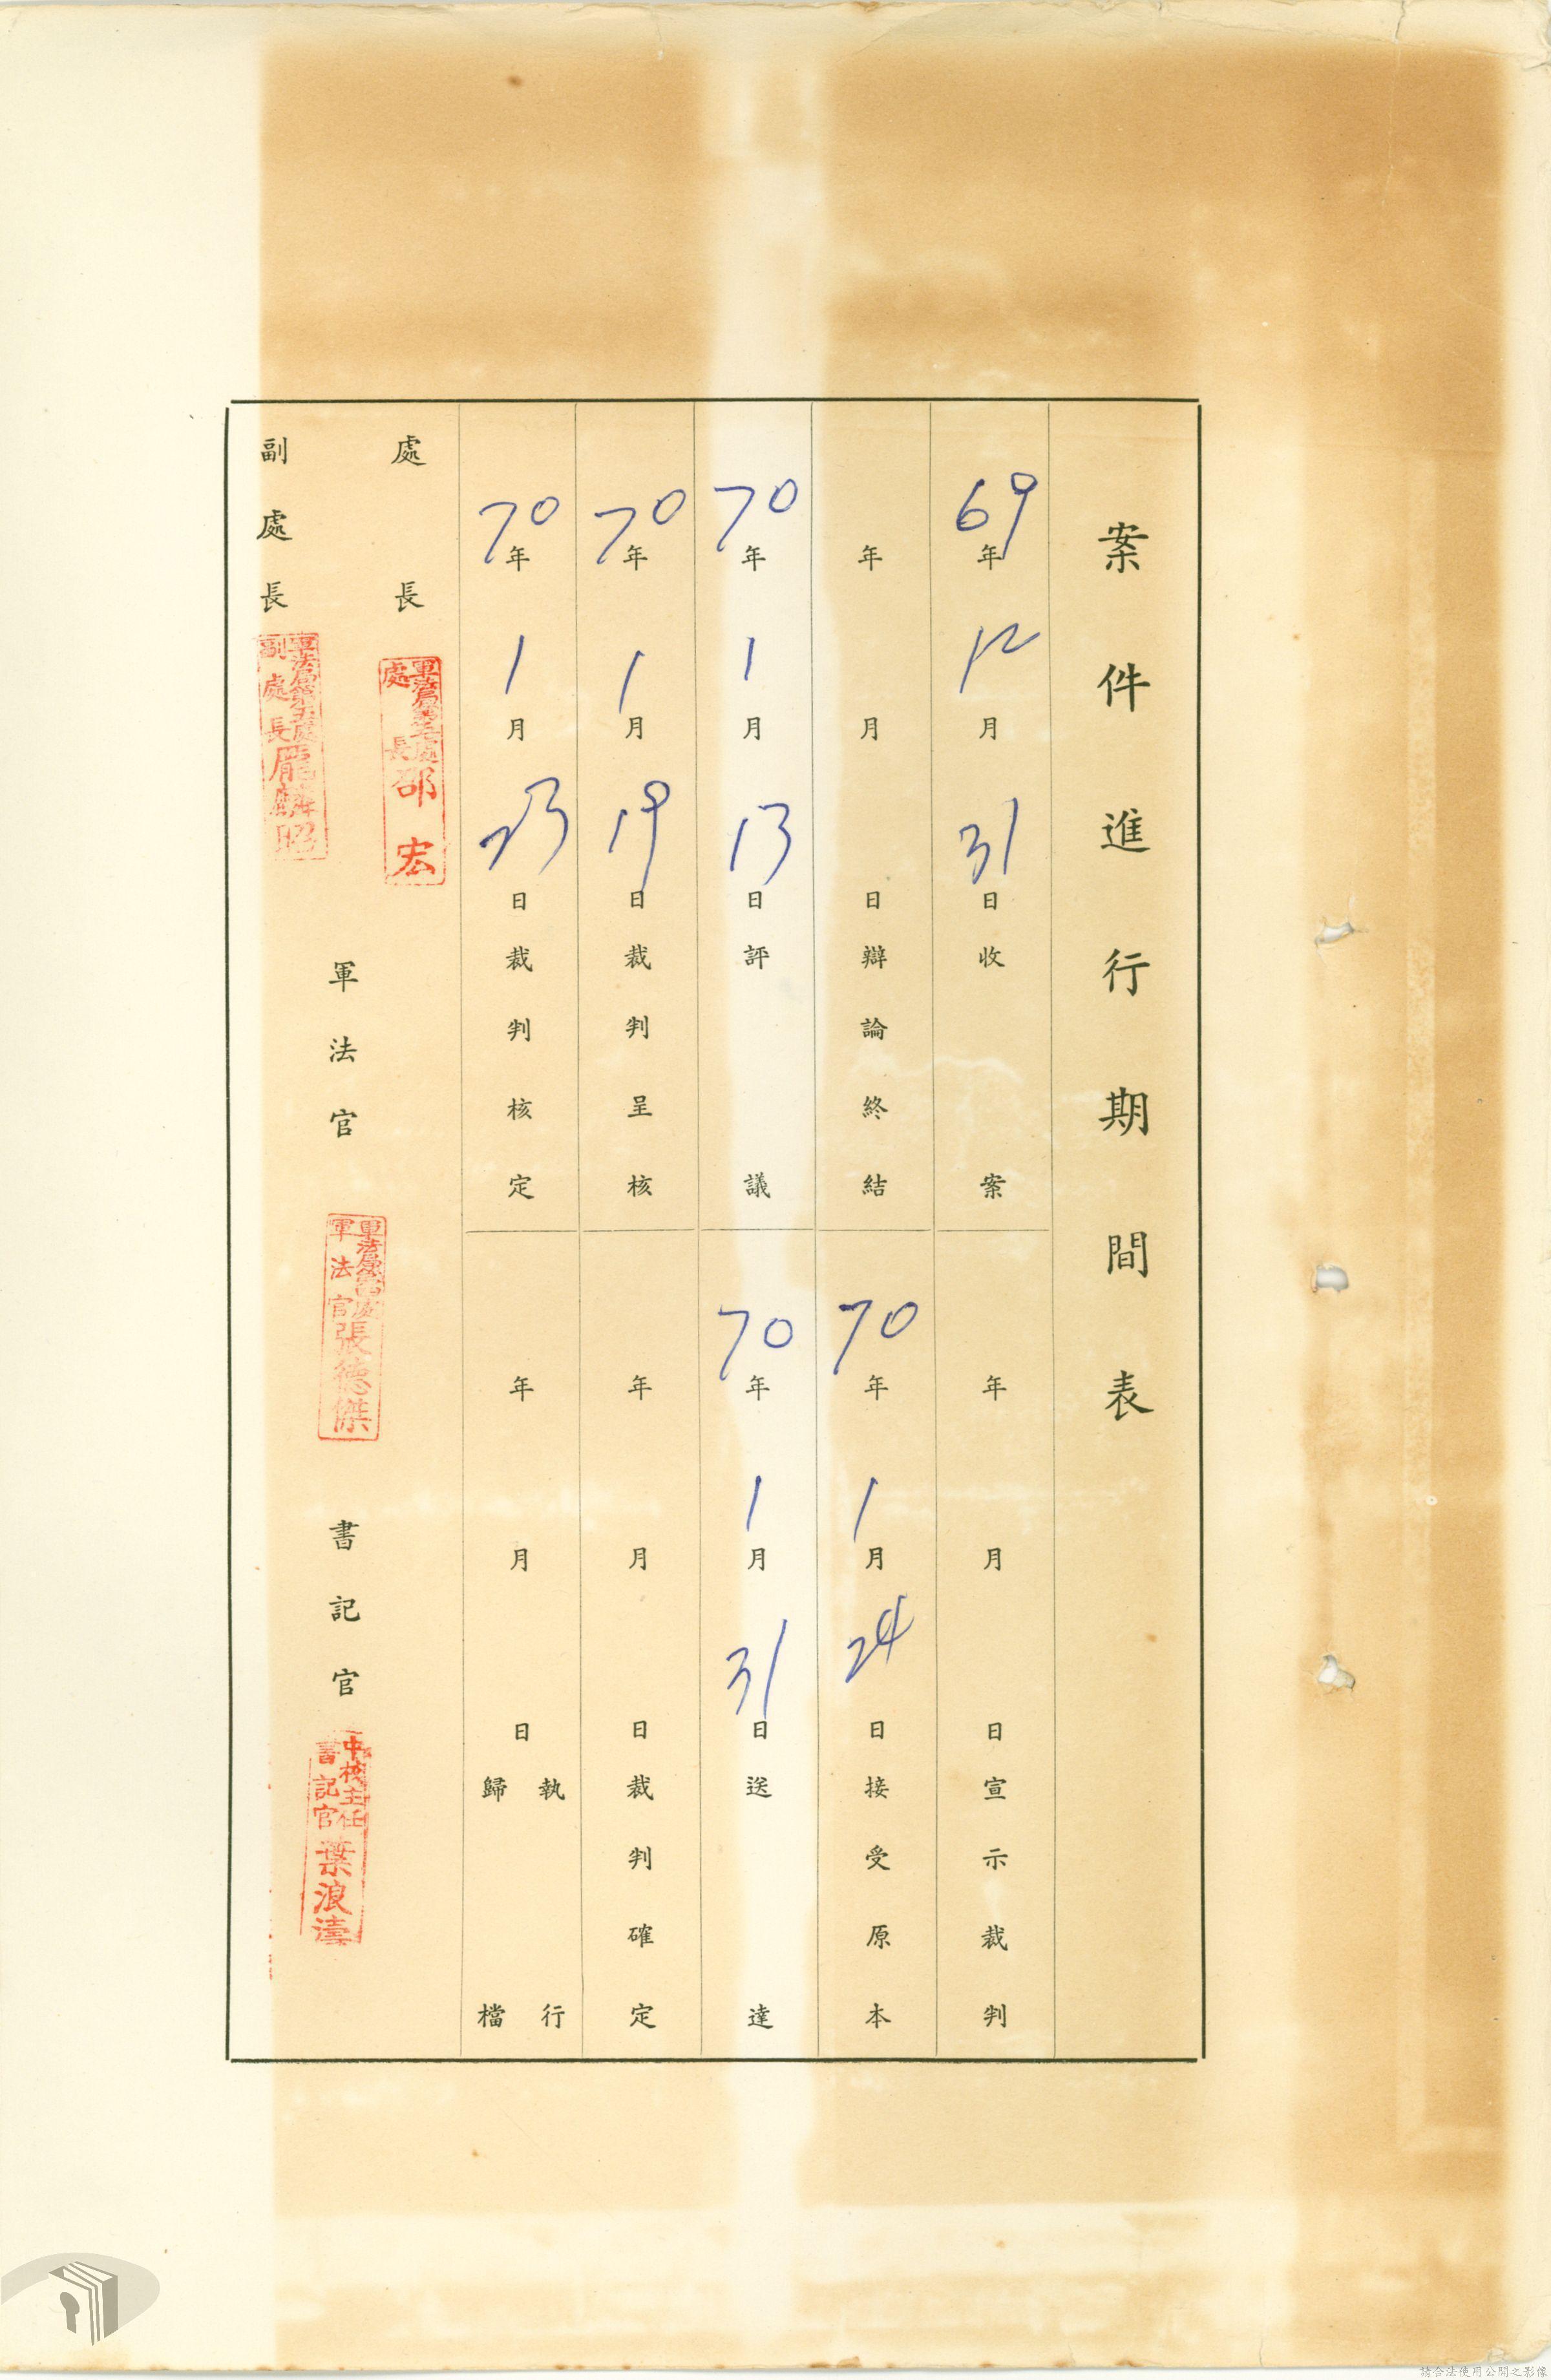 案件進行期間表
69年12月31日收案
年月日宣示裁判
年月日辯論終結
70年1月24日接受原本
70年1月13日評議
70年1月31日送達
70年1月19日裁判呈核
年月日裁判確定
70年1月23日裁判核定
年月日執行歸檔
處長
處長邵宏
副處長
副處長龐麟昭
軍法官
軍法官張德傑
書記官
中校主任
書記官葉浪濤
請合法使用公開之影像